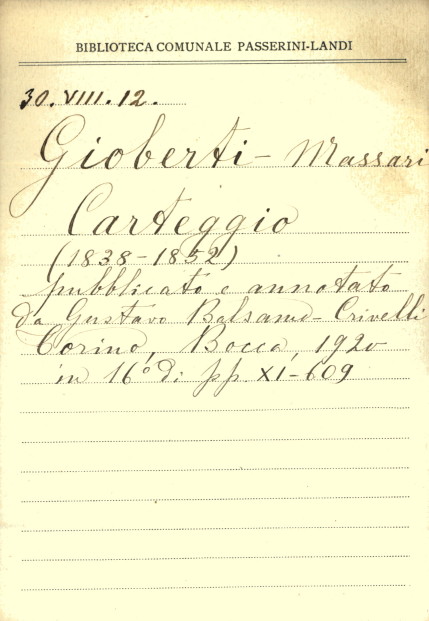 BIBLIOTECA COMUNALE PASSERINI-LANDI
30.VIII.12.
Gioberti - Massari
Carteggio
(1838-1852)
pubblicato e annotato
da Gustavo Balsamo-Crivelli
Torino, Bocca, 1920
in 16° di pp. XI-609